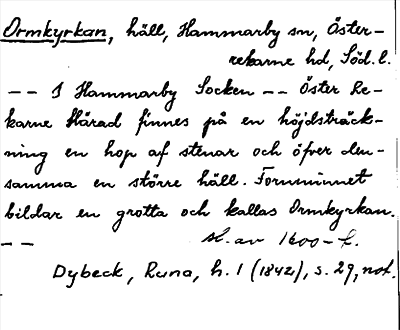 Ormkyrkan, häll, Hammarby sn, Öster-
rekarne hd, Söd. l.
-- I Hammarby Socken -- Öster Re-
karne Härad finnes på en höjdsträck-
ning en hop af stenar och öfver den-
samma en större häll. Fornminnet
bildar en grotta och kallas Ormkyrkan.
--
sl. av 1600-t.
Dybeck, Runa, h. 1 (1842), s. 29, not.